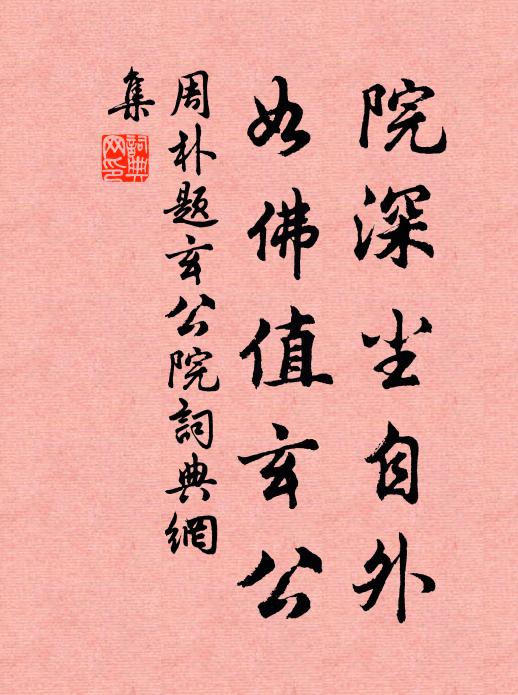 院深尘自外
如佛值玄公
周朴题玄公院詞典網
集
詞典网印